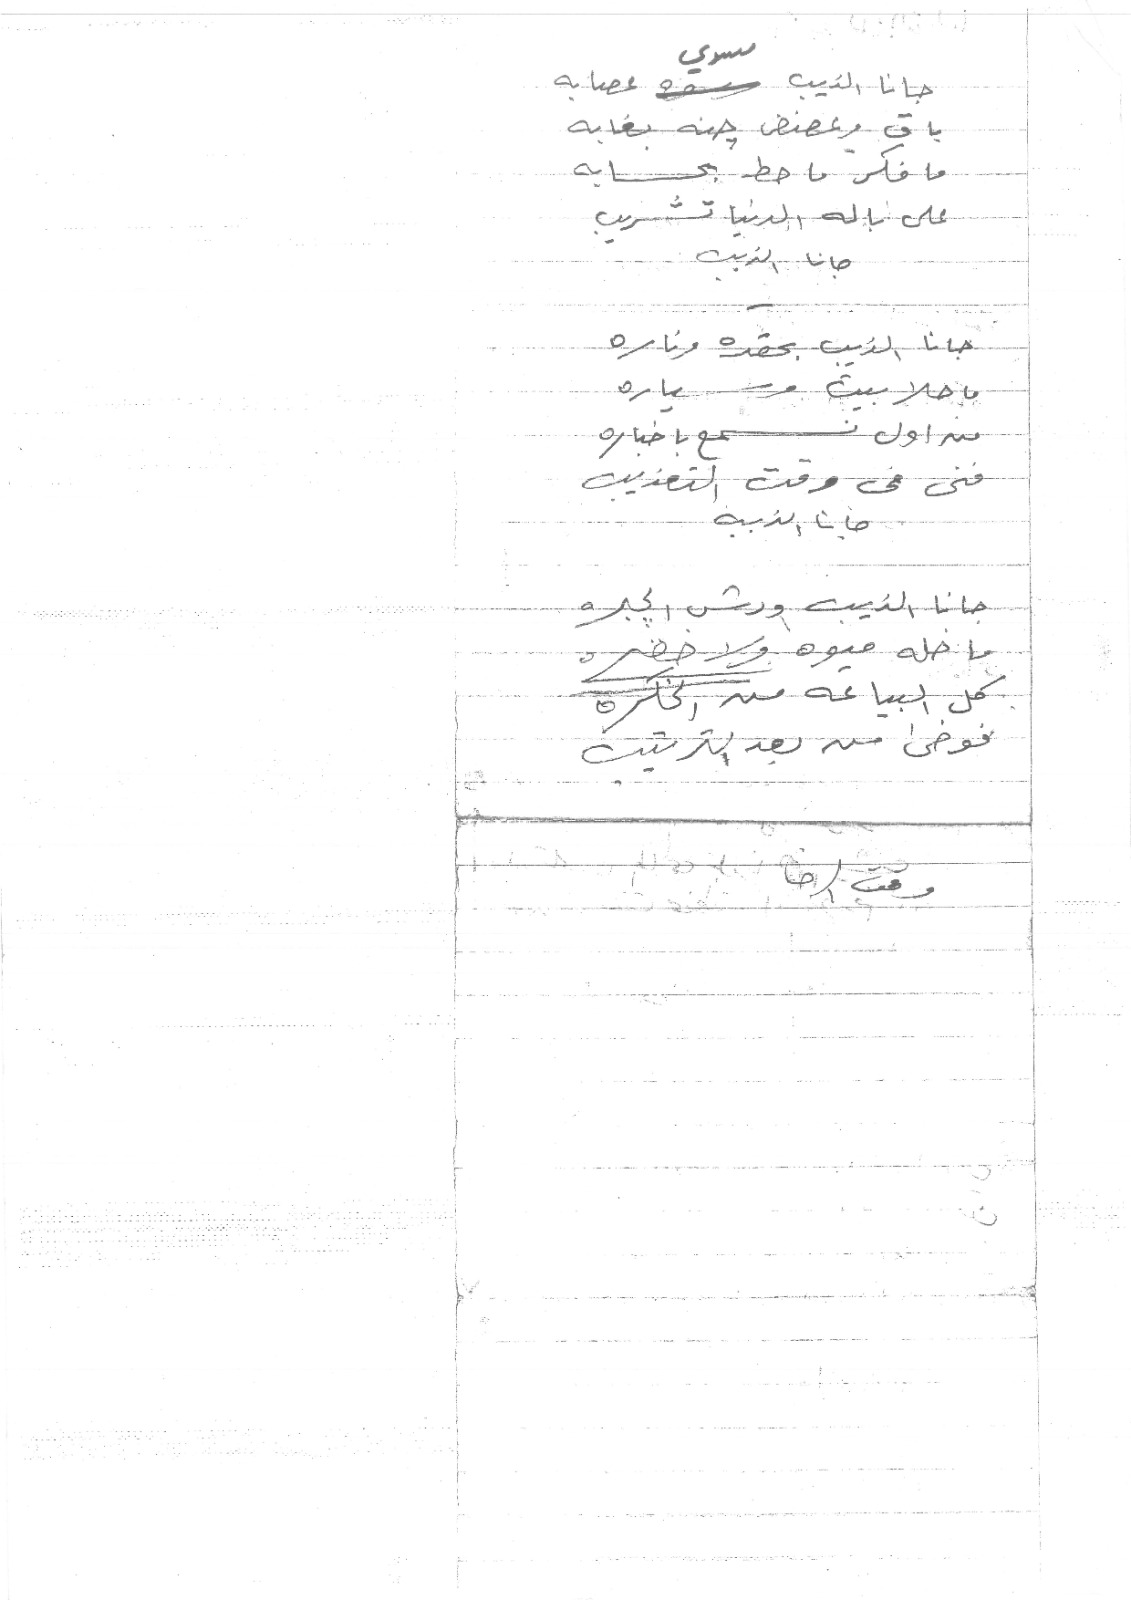 مسوي
جانا الذيب عصابه
باق وعضنض چنه بغابه
ما فكر ما حط بحسابه
على باله الدنيا تشريب
جانا الذيب
جانا الذيب بحقده وناره
ما خلا بيت وسياره
من اول نسمع باخباره
فنى في وقت التعذيب
جانا الذيب
جانا الذيب ودش الچبره
ما خله ميوه ولا خضره
كل البياعه من
فوضى من بعد الترتيب
وقت الرخا